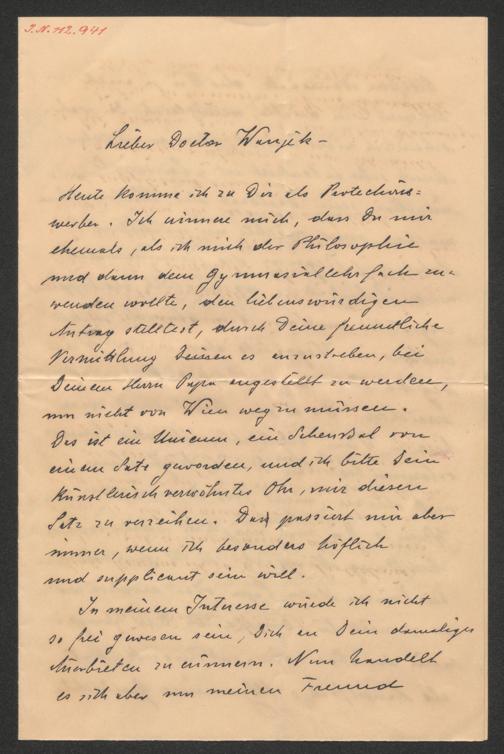 J.N. 112.941
Lieber Doctor Wanjek –
Heute komme ich zu Dir als Protections=
werber. Ich erinnere mich, dass Du mir
ehemals, als ich mich der Philosophie
und dann dem Gymnasiallehrfach zu=
wenden wollte, den liebenswürdigen
Antrag stelltest, durch Deine freundliche
Vermittlung es anzustreben, bei
Deinem Herrn Papa angestellt zu werden,
um nicht von Wien weg zu müssen.
Das ist ein Unicum, ein Scheusal von
einem Satz geworden, und ich bitte Dein
künstlerisch verwöhntes Ohr, mir diesen
Satz zu verzeihen. Das passiert mir aber
immer, wenn ich besonders höflich
und supplicant sein will.
In meinem Interesse würde ich nicht
so frei gewesen sein, Dich an Dein damaliges
Anerbieten zu erinnern. Nun handelt
es sich aber um meinen Freund